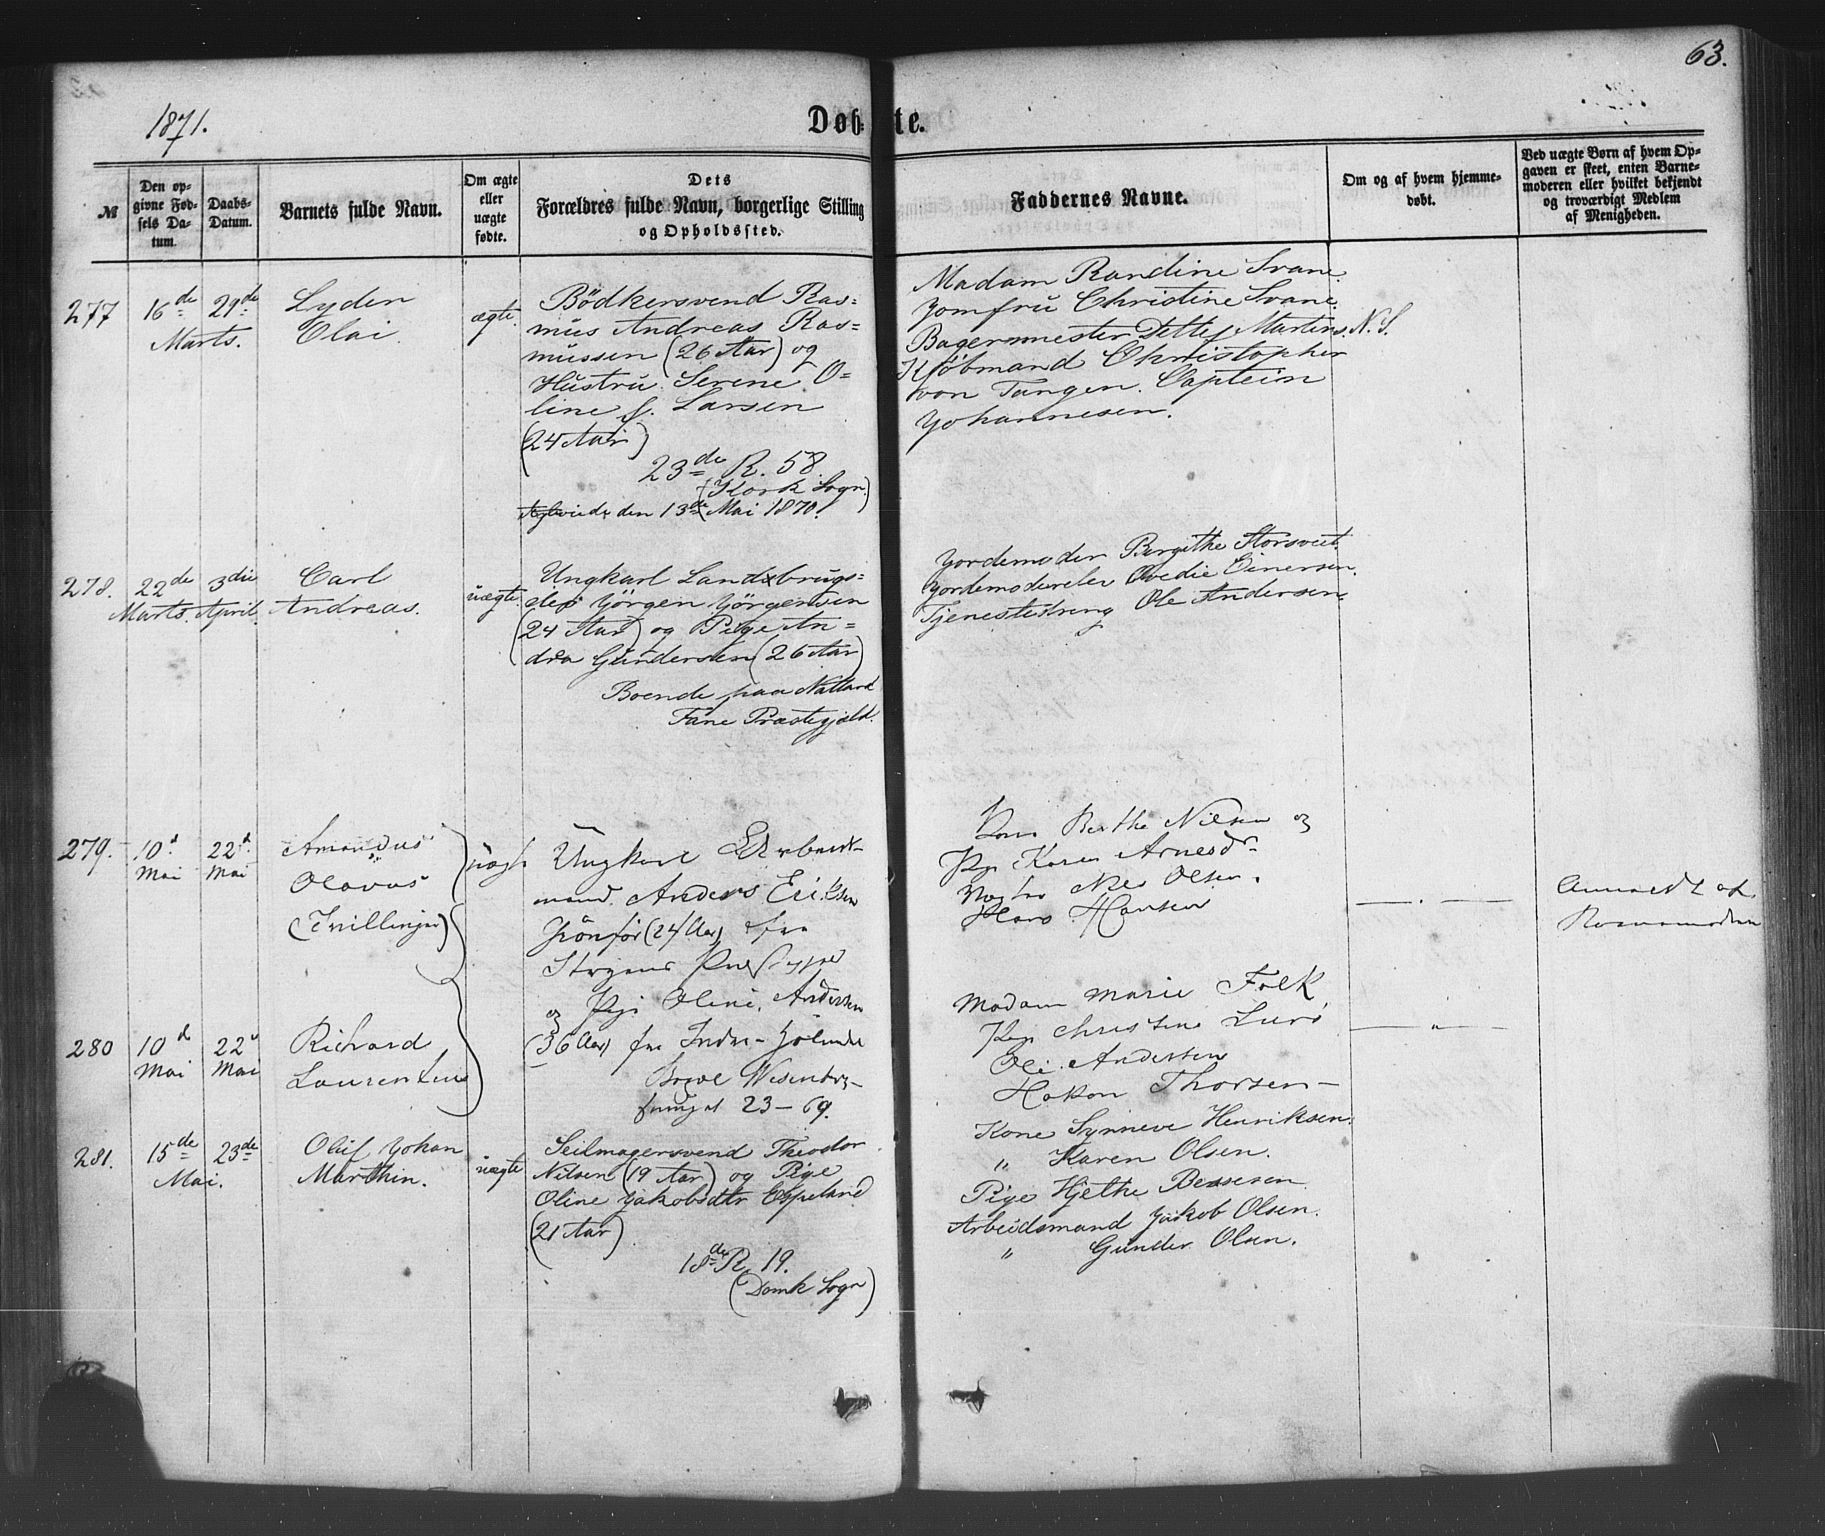 63.
1871.
Døb=te.
№
Den op=
givne Fød=
sels Da=
tum.
Daabs=
Datum.
Barnets fulde Navn.
Om ægte
eller
uægte
fødte.
Dets
Forældres fulde Navn, borgerlige Stilling
og Opholdssted.
Faddernes Navne.
Om og af hvem hjemme=
døbt.
Ved uægte Børn af hvem Op=
gaven er skeet, enten Barne=
moderen eller hvilket bekjendt
og troværdigt Medlem
af Menigheden.
277
16de
Marts.
29de
Lyder
Olai.
ægte.
Bödkersvend Ras=
mus Andreas Ras=
mussen (26 Aar) og
Hustru Serene O=
line f. Larsen
(24 Aar)
23de R. 58.
(Kork Sogn.)
den 13de Mai 1870.
Madam Randine Svane
Jomfru Christine Svane.
Bagermester Detlef Martens. N. S.
Kjøbmand Christopher
von Tangen. Captein
Johannesen.
278.
22de
Marts.
3die
April.
Carl
Andreas.
uægte.
Ungkarl Landbrugs=
Jörgen Jörgensen
(24 Aar) og Pige An=
dra Gundersen (26 Aar)
Boende paa Natland
Fane Præstegjeld.
Jordemoder Birgithe Storsveit.
Jordemoderelev Ovedie Einersen.
Tjenestedreng Ole Andersen.
279.
10d
Mai
22d
Mai
Amandus
Olavus
(Tvillinger)
uægte
Ungkarl Arbeids-
mand Anders Eriksen
Grönför (24 Aar) fra
Stryens Præst
og Pige Oline Andersen
(36 Aar) fra Indre-
23 - 69.
Kone Berthe Nilsen og
Pige Karen Arnesdr
Nils Olsen.
Hans Hansen
Anmeldt af
Barnemoderen
280
10d
Mai
22d
Mai
Richard
Laurentius
Madam Marie Falk
Pige Christine
Ole Andersen
Hakon Thorsen
281.
15de
Mai.
23de
Oluf Johan
Marthin.
uægte
Seilmagersvend Theodor
Nilsen (19 Aar) og Pige
Oline Jakobsdtr Espeland
(21 Aar)
18de R. 19.
(Domk Sogn)
Kone Synneve Henriksen.
" Karen Olsen.
Pige Hjethe Bessesen
Arbeidsmand Jakob Olsen.
" Gunder Olsen.